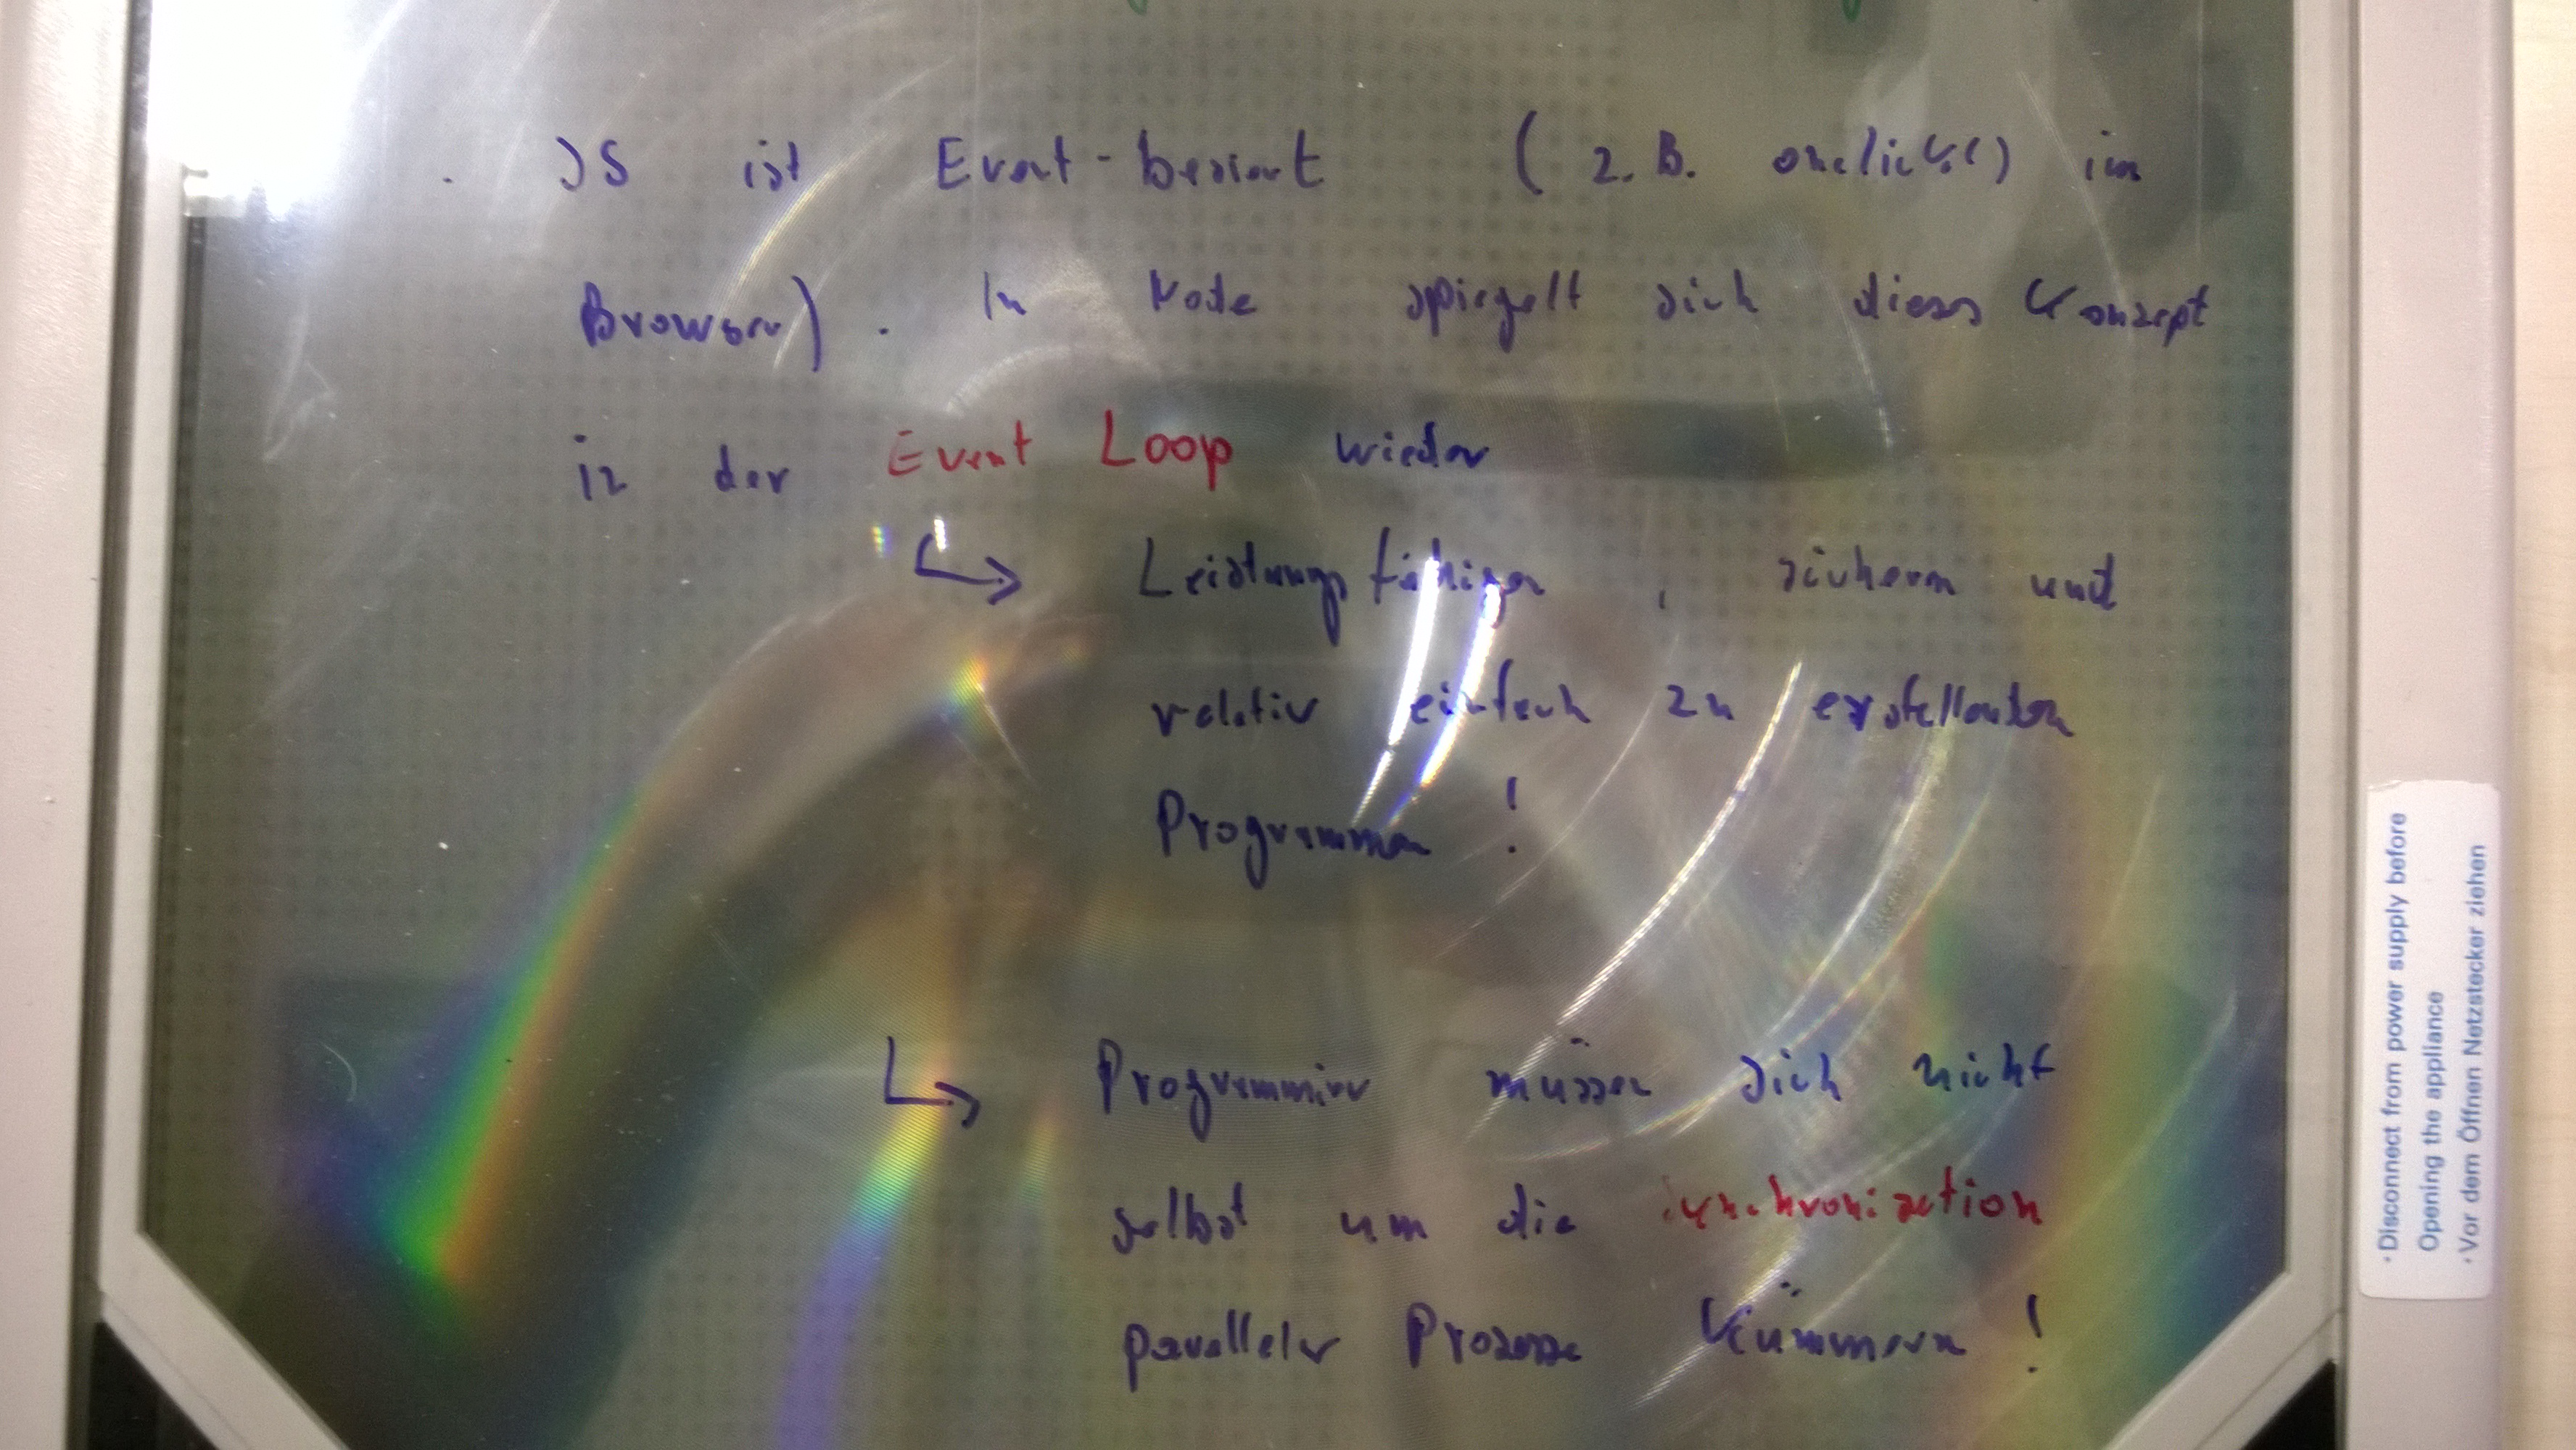 · JS ist Event-basiert (z.B. onclick() im
Browser). In Node spiegelt sich dieses Konzept
in der Event Loop wieder
↳ Leistungsfähigen, sicheren und
relativ einfach zu erstellenden
Programmen!
↳ Programmierer müssen sich nicht
selbst um die Synchronisation
paralleler Prozesse kümmern!
· Disconnect from power supply before
Opening the appliance
· Vor dem Öffnen Netzstecker ziehen